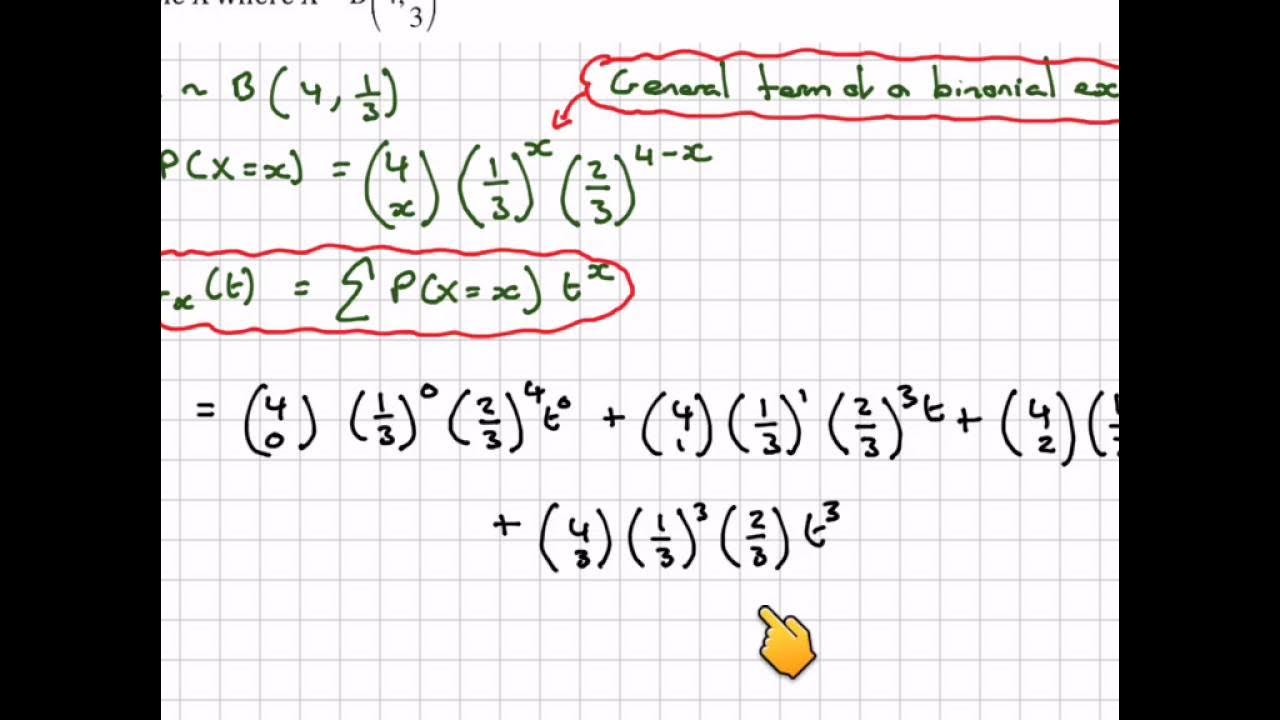 ~ B(4, 1/3)
General term of a binomial
P(X=x) = (4 x) (1/3)^x (2/3)^{4-x}
x(t) = ∑ P(X=x) t^x
= (4 0) (1/3)^0 (2/3)^4 t^0 + (4 1) (1/3)^1 (2/3)^3 t + (4 2) (
+ (4 3) (1/3)^3 (2/3) t^3